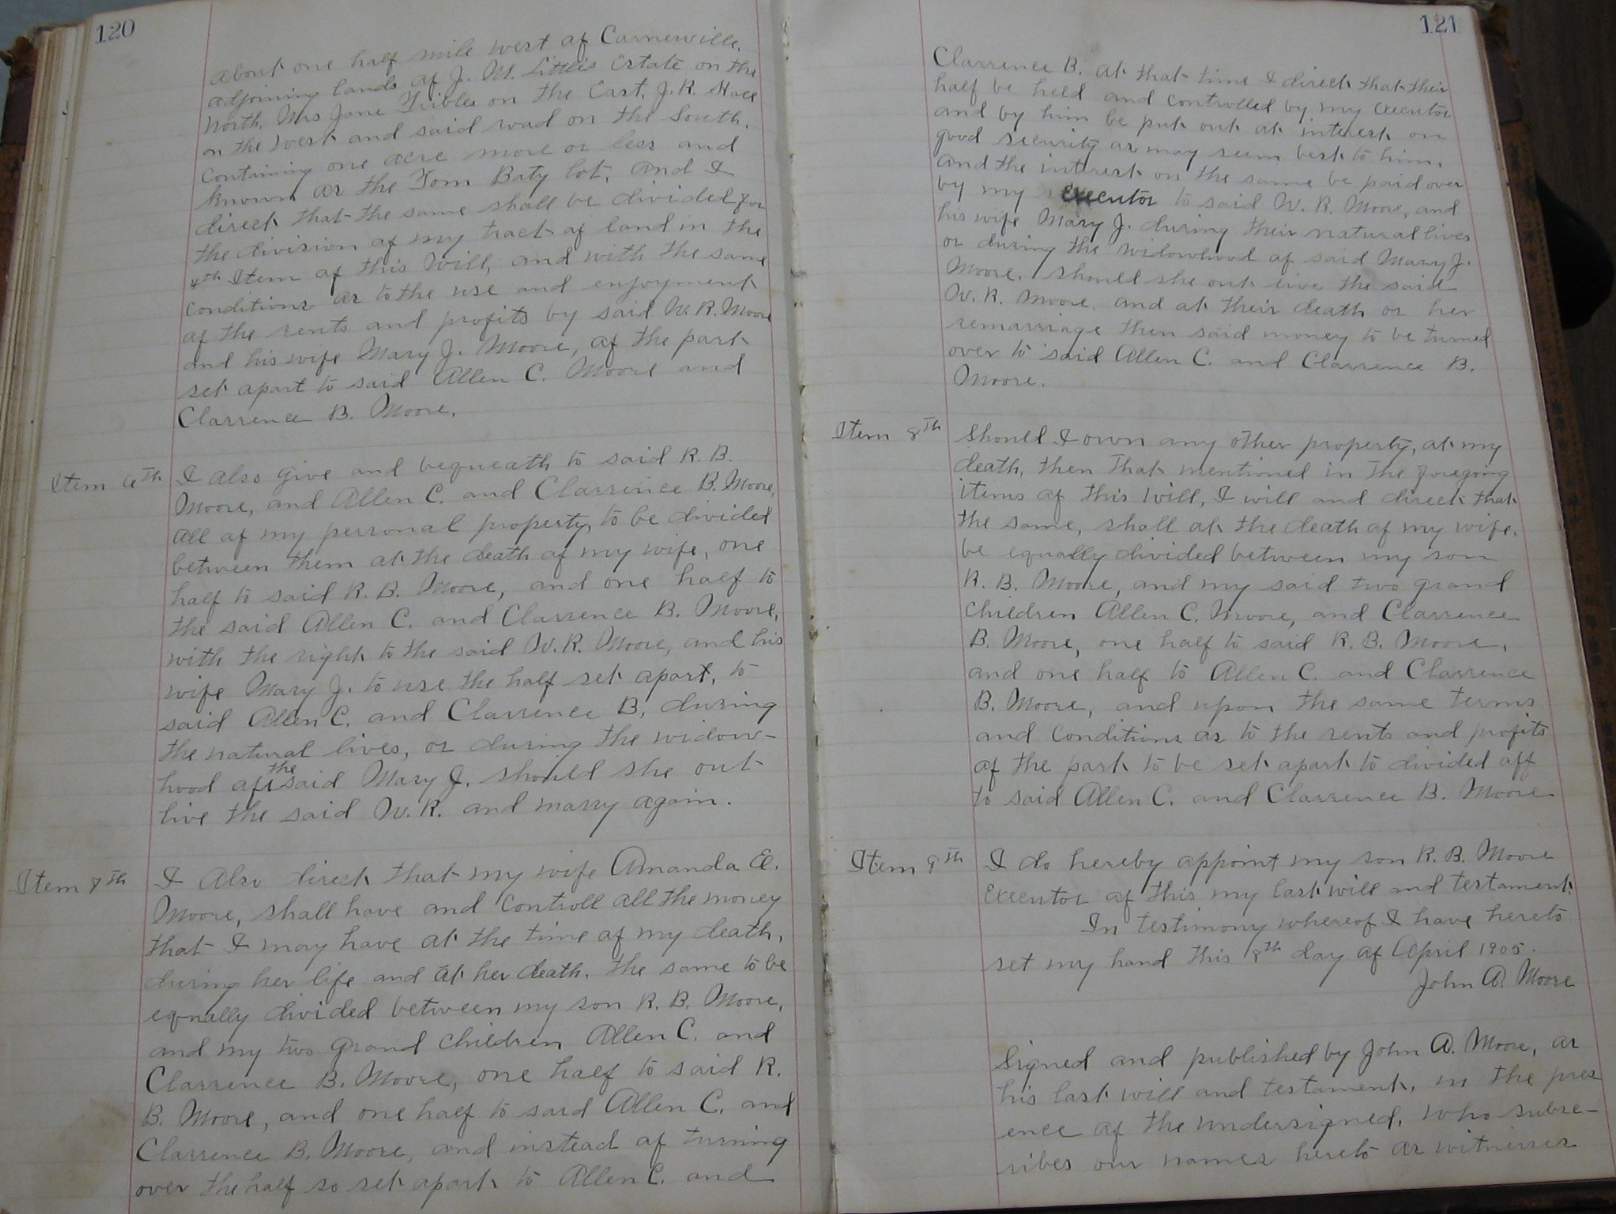 120
about one half mile west of Carnesville,
adjoining lands of J. M. Little's Estate on the
North, Mrs Jane Tribles on the East, J. R.
on the West and said road on the South.
Containing one acre more or less and
known as the Tom Baty lot, and I
direct that the same shall be divided for
the division of my tract of land in the
4th Item of this Will, and with the same
Conditions as to the use and enjoyment
of the rents and profits by said W. R. Moore
and his wife Mary J. Moore, of the part
set apart to said Allen C. Moore and
Clarrence B. Moore.
Item 6th I also give and bequeath to said R. B.
Moore, and Allen C. and Clarrence B. Moore,
all of my personal property, to be divided
between them at the death of my wife, one
half to said R. B. Moore, and one half to
the said Allen C. and Clarrence B. Moore,
with the right to the said W. R. Moore, and his
wife Mary J. to use the half set apart, to
said Allen C. and Clarrence B, during
the natural lives, or during the widow-
hood of the said Mary J. should she out-
live the said W. R. and marry again.
Item 7th I Also direct that my wife Amanda E.
Moore, shall have and controll all the money
that I may have at the time of my death,
during her life and at her death, the same to be
equally divided between my son R. B. Moore,
and my two grand children Allen C. and
Clarrence B. Moore, one half to said R.
B. Moore, and one half to said Allen C. and
Clarrence B. Moore, and instead of turning
over the half so set apart to Allen C. and
121
Clarrence B. at that time I direct that their
half be held and controlled by my executor
and by him be put out at interest on
good security as may seem best to him,
and the interest on the same be paid over
by my executor to said W. R. Moore, and
his wife Mary J. during their natural lives
or during the widowhood of said Mary J.
Moore, should she out live the said
W. R. Moore, and at their death or her
remarriage then said money to be turned
over to said Allen C. and Clarrence B.
Moore.
Item 8th Should I own any other property, at my
death, then that mentioned in the foregoing
items of this Will, I will and direct that
the same, shall at the death of my wife,
be equally divided between my son
R. B. Moore, and my said two grand
children Allen C. Moore, and Clarrence
B. Moore, one half to said R. B. Moore,
and one half to Allen C. and Clarrence
B. Moore, and upon the same terms
and Conditions as to the rents and profits
of the part to be set apart to divided off
to said Allen C. and Clarrence B. Moore
Item 9th I do hereby appoint my son R. B. Moore
Executor of this my last will and testament
In testimony whereof I have hereto
set my hand this 8th day of April 1905.
John A. Moore
Signed and published by John A. Moore, as
his last will and testament, in the pres
ence of the undersigned, who subsc-
ribes our names hereto as witnesses